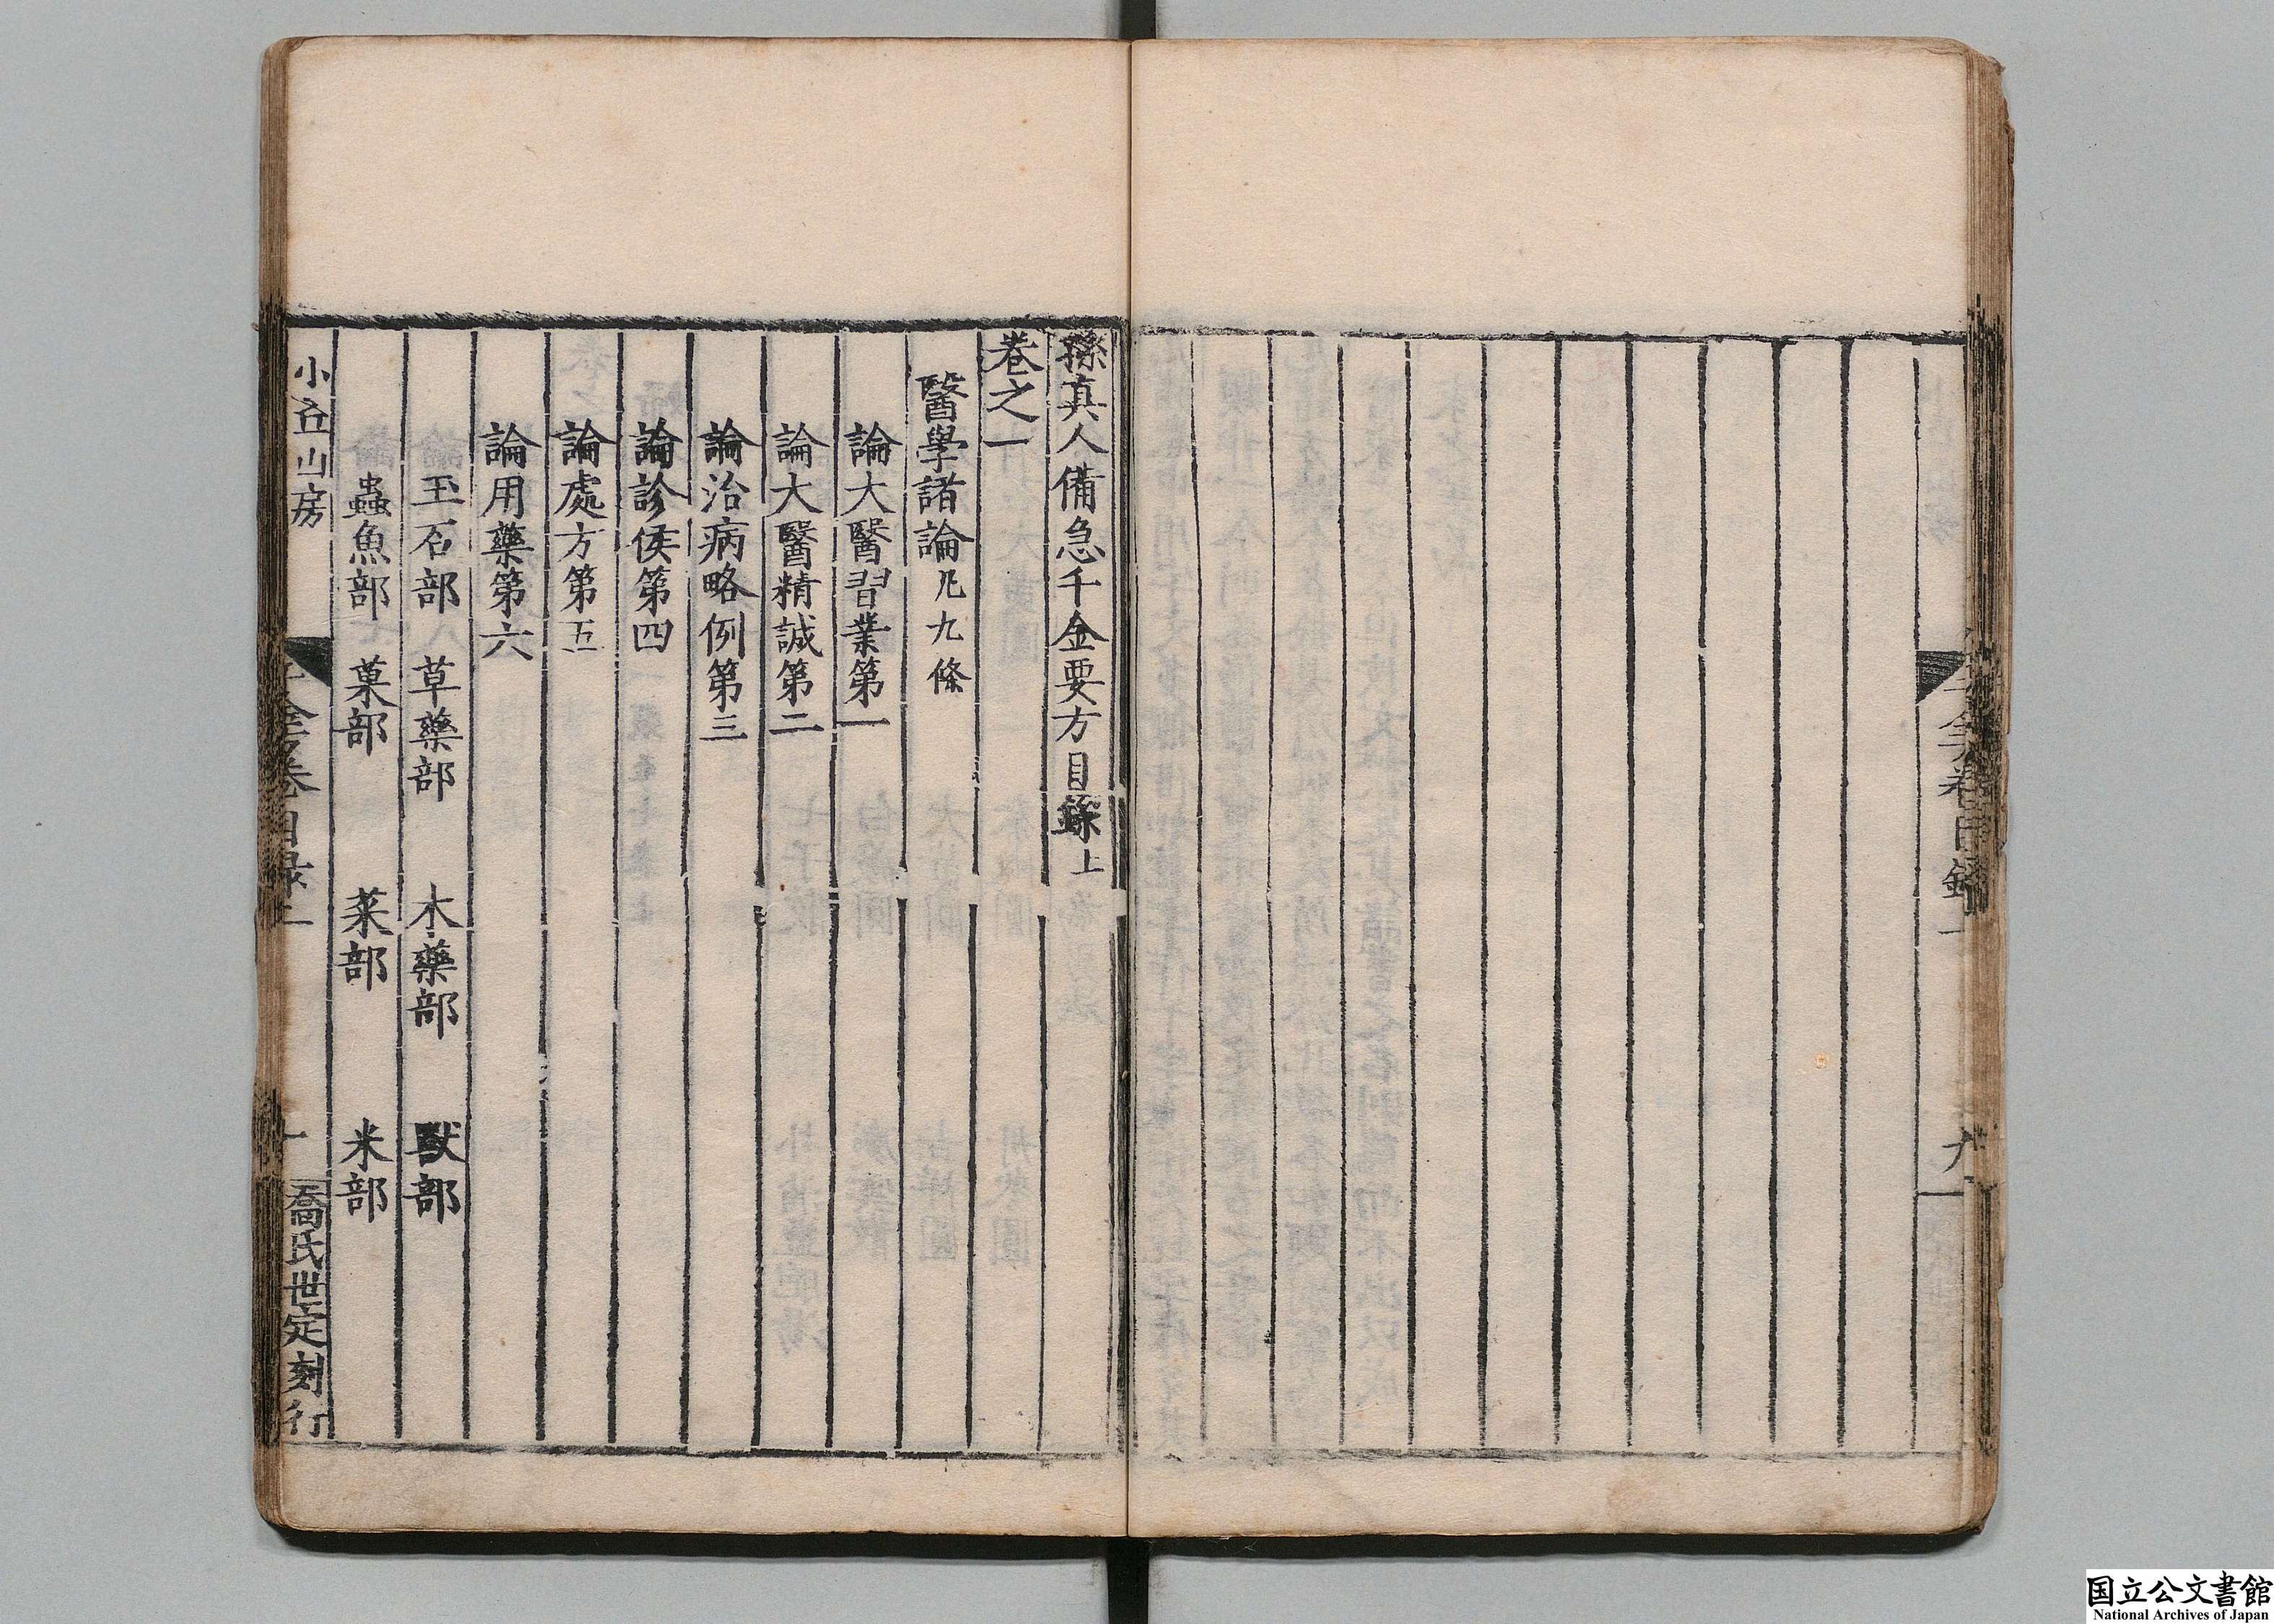 孫真人備急千金要方目錄上
卷之一
醫學諸論凡九條
論大醫習業第一
論大醫精誠第二
論治病略例第三
論診侯第四
論處方第五
論用藥第六
玉石部 草藥部 木藥部 獸部
蟲魚部 菓部 菜部 米部
小丘山房
金方卷目錄上 一
喬氏世定刻行
国立公文書館
National Archives of Japan